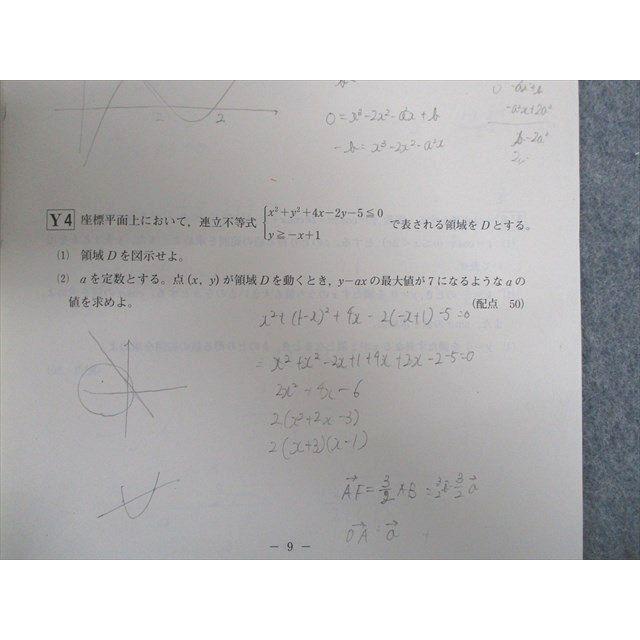 2 2
0 = x³-2x²-a²x+b
-b = x³-2x²-a²x
-a²x+2a³
Y4 座標平面上において，連立不等式 { x²+y²+4x-2y-5≦0 y≧-x+1 で表される領域をDとする。
(1) 領域Dを図示せよ。
(2) aを定数とする。点(x, y)が領域Dを動くとき，y-axの最大値が7になるようなaの
値を求めよ。 (配点 50)
x²+(1-x)²+4x-2(-x+1)-5=0
= x²+x²-2x+1+4x+2x-2-5=0
2x²+4x-6
2(x²+2x-3)
2(x+3)(x-1)
AF = 3/2 AB = 3/2 b - 3/2 a
OA = a
- 9 -